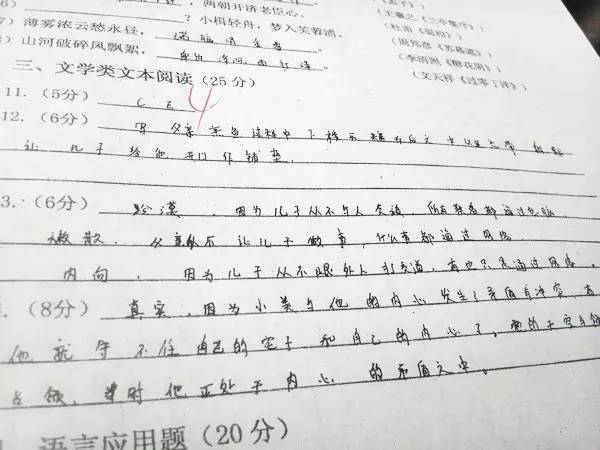 6) ，两朝开济老臣心。 《孟子》）
？小楫轻舟，梦入芙蓉浦。 （王羲之《兰亭集序》）
7) 薄雾浓云愁永昼， 瑞脑消金兽 。 （杜甫《蜀相》）
8) 山河破碎风飘絮， 身世浮沉雨打萍 。 （周邦彦《苏幕遮》）
（李清照《醉花阴》）
（文天祥《过零丁洋》）
三、文学类文本阅读（25分）
11.（5分） C E 4
12.（6分） 写父亲
让儿子给他开门作铺垫.
3.（6分） 冷漠，因为儿子从不与人交谈，所有联系都通过电脑
懒散.父亲从不让儿子做事，什么事都通过网络
内向，因为儿子从不跟外人打交道，有也只是通过网络.
（8分） 真实，因为小美与他的内心发生了矛盾与冲突，
他就守不住自己的空子和自己的内心了。
占领，当时他正处于内心的矛盾之中。
语言应用题（20分）